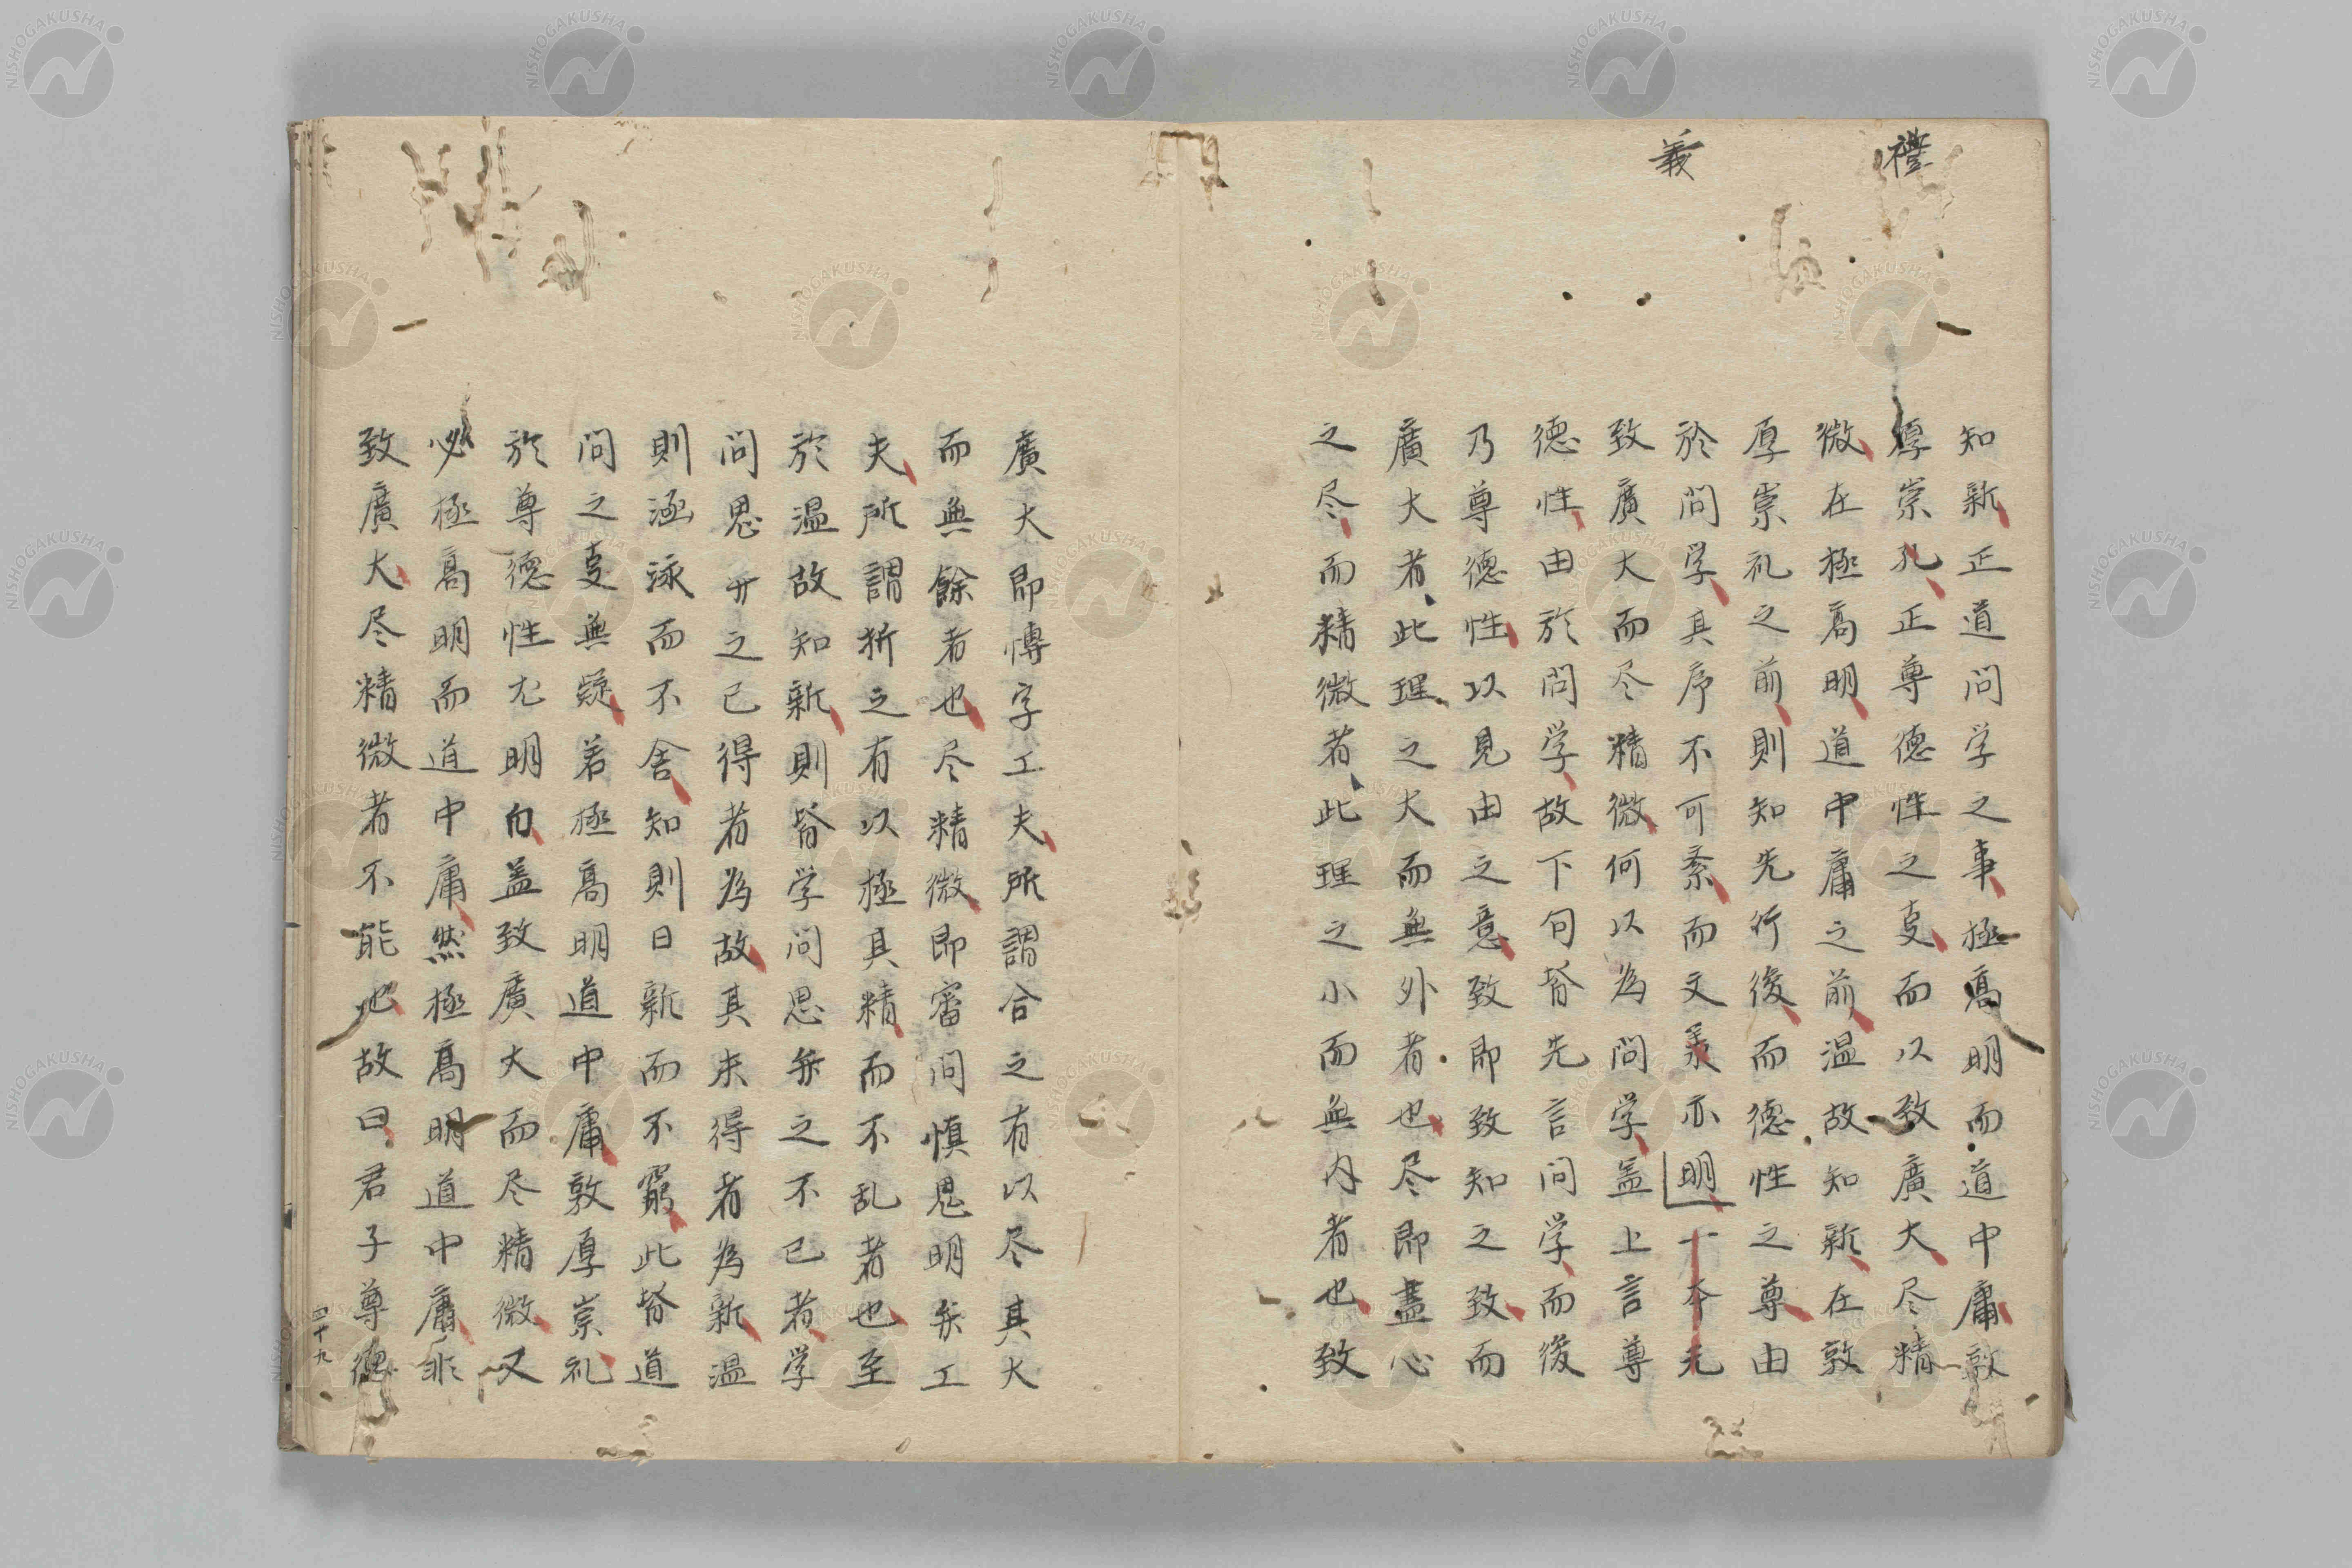 禮
義
知新正道問学之事極高明而道中庸敦
厚崇礼正尊德性之㕝而以致廣大尽精
微在極高明道中庸之前温故知新在敦
厚崇礼之前則知先行後而德性之尊由
於問学其序不可紊而文義亦明一本无
致廣大而尽精微何以為問学盖上言尊
德性由於問学故下句皆先言問学而後
乃尊德性以見由之意致即致知之致而
廣大者此理之大而無外者也尽即盡心
之尽而精微者此理之小而無内者也致
廣大即博字工夫所謂合之有以尽其大
而無餘者也尽精微即審問慎思明弁工
夫所謂析之有以極其精而不乱者也至
於温故知新則皆学問思弁之不已者学
問思弁之已得者為故其未得者為新温
則涵泳而不舍知則日新而不窮此皆道
問之㕝無疑若極高明道中庸敦厚崇礼
於尊德性尤明白盖致廣大而尽精微又
必極高明而道中庸然極高明道中庸非
致廣大尽精微者不能也故曰君子尊德
四十九
NISHOGAKUSHA